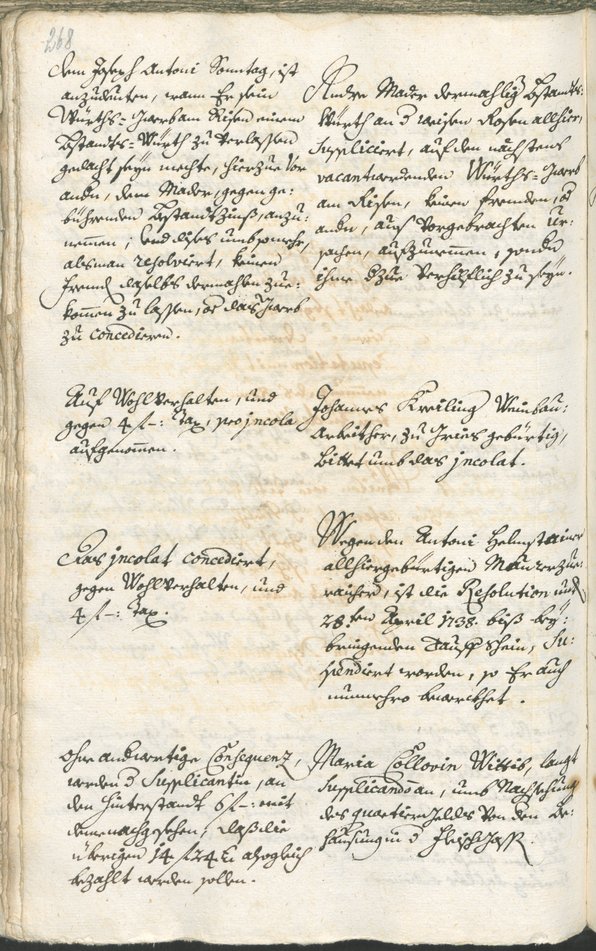 268
dem Joseph Antoni Sonntag, ist
anzudeuten, wann Er sein
Würths-Gwerb am Risen einem
Bstandts-Würth zu verlassen
gedacht seyn mechte, hierzue vor
andn, dem Mader, gegen ge:
bührenden Bstandtzünß, anzu:
nemmen; und dises umb somehr,
alsman resolviert, keinen
frembden daselbs dermahlen zue:
kommen zu lassen, od das Gwerb
zu concedieren.
Andre Mader dermahlig bstandts:
Würth an d weisen Rosen allhier,
Suppliciert, auf den nächstens
vacantwerdenden Würths-Gwerb
am Risen, keinen frembden, od
andn, aus vorgebrachten Ur:
sachen, aufzunemmen; sondn
ihme dzue verhilflich zu seyn.
Auf Wohlverhalten, und
gegen 4 f –: tax, pro jncola
aufgenommen.
Johannes Kreiling Weinbau:
Arbeither, zu Gries gebürtig,
bittet umb das jncolat.
das jncolat concediert,
gegen Wohlverhalten, und
4 f –: tax.
Wegen den Antoni Helmstainer
allhier gebürtigen Maurerzue:
raicher, ist die Resolution und
28.ten April 1738. biß bey:
bringenden Tauff Schein, Su:
spendiert worden, so Er auch
nunmehro bewerckhet.
Ohne andwertige Consequenz,
werden d Supplicantin, an
den hinterstandt 6 f –: mit
deme nachgesehen, daß die
übrigen 14 f 24 x alsogleich
bezahlt werden sollen.
Maria Collovin Wittib, langt
Supplicando an, umb Nachsehung
des quartiergelds von den Be:
hausung in d Fleischgass.